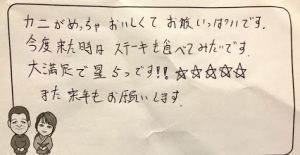 カニがめっちゃおいしくてお腹いっぱいです。
今度来た時はステーキも食べてみたいです。
大満足で星5つです!!☆☆☆☆☆
また来年もお願いします。